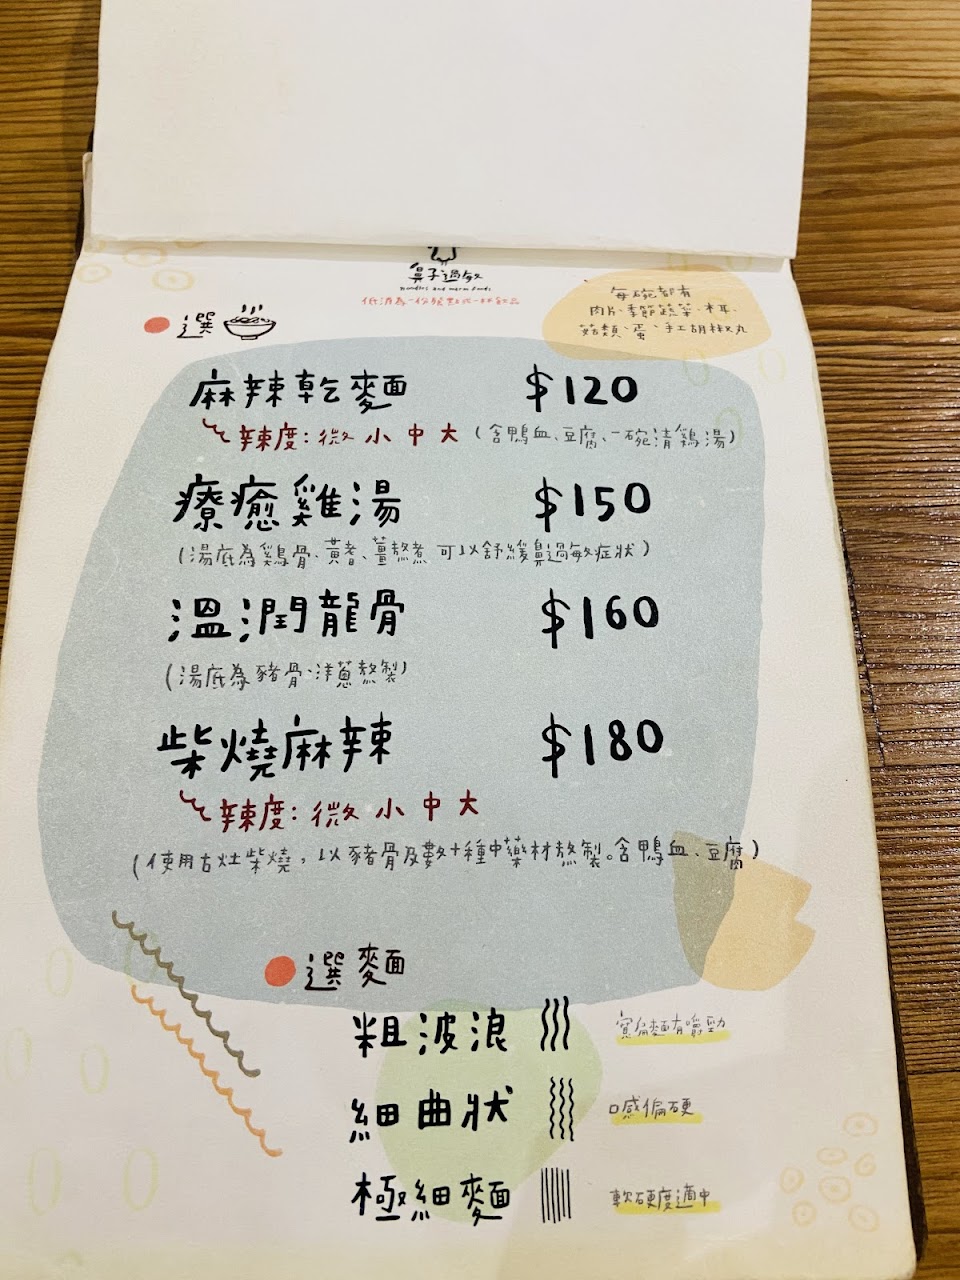 鼻子過敏
noodles and warm foods
低消為一份餐點或一杯飲品
每碗都有
肉片、季節蔬菜、木耳、
菇類、蛋、手工胡椒丸
選
麻辣乾麵 $120
辣度：微 小 中 大（含鴨血、豆腐、一碗清雞湯）
療癒雞湯 $150
（湯底為雞骨、黃耆、薑熬煮 可以舒緩鼻過敏症狀）
溫潤龍骨 $160
（湯底為豬骨、洋蔥熬製）
柴燒麻辣 $180
辣度：微 小 中 大
（使用古灶柴燒，以豬骨及數十種中藥材熬製。含鴨血、豆腐）
選麵
粗波浪 寬扁麵有嚼勁
細曲狀 口感偏硬
極細麵 軟硬度適中